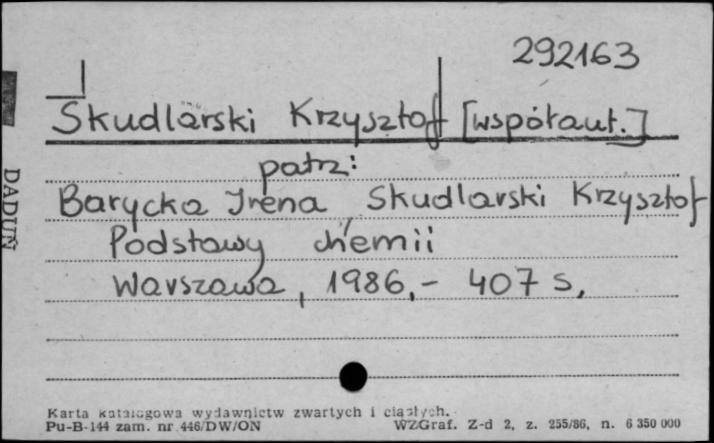 292163
Skudlarski Krzysztof [współaut.]
patrz:
Barycka Irena, Skudlarski Krzysztof
Podstawy chemii
Warszawa, 1986,- 407 s.
DADUŃ
Karta katalogowa wydawnictw zwartych i ciągłych.
Pu-B-144 zam. nr 446/DW/ON WZGraf. Z-d 2, z. 255/86, n. 6 350 000